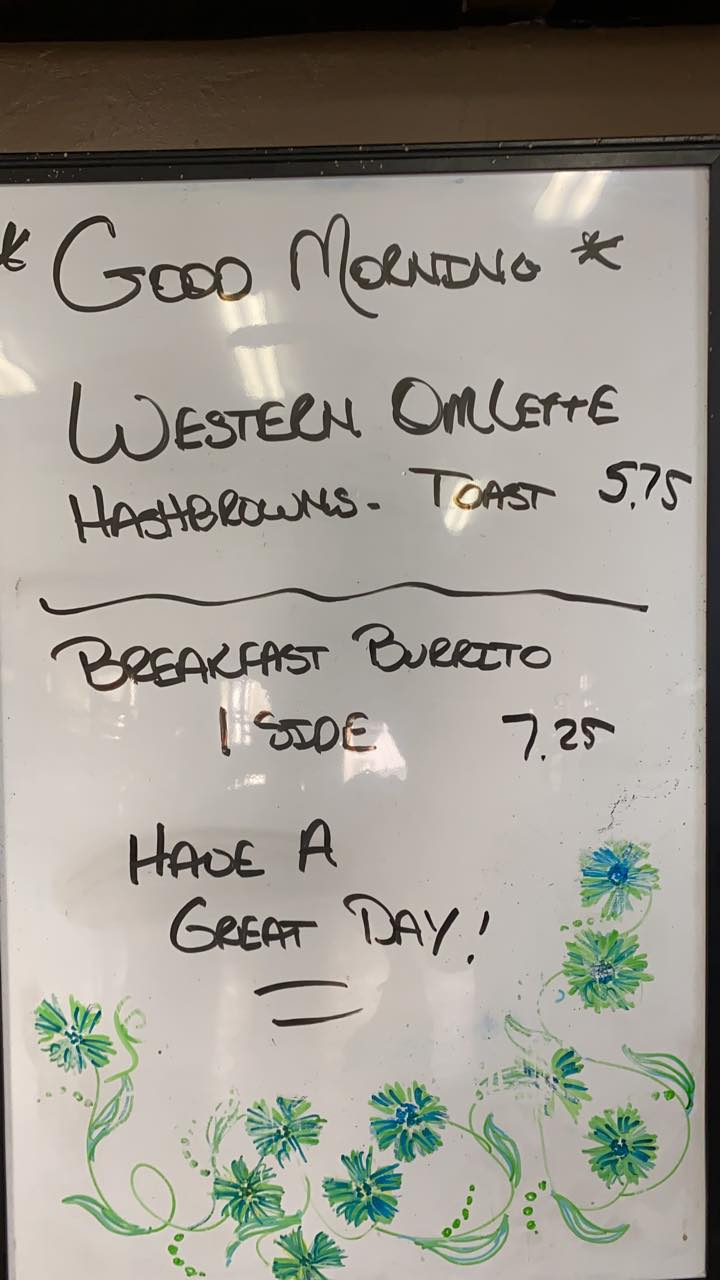 * GOOD MORNING *
WESTERN OMLETTE
HASHBROWNS - TOAST 5.75
BREAKFAST BURRITO
1 SIDE 7.25
HAVE A
GREAT DAY!